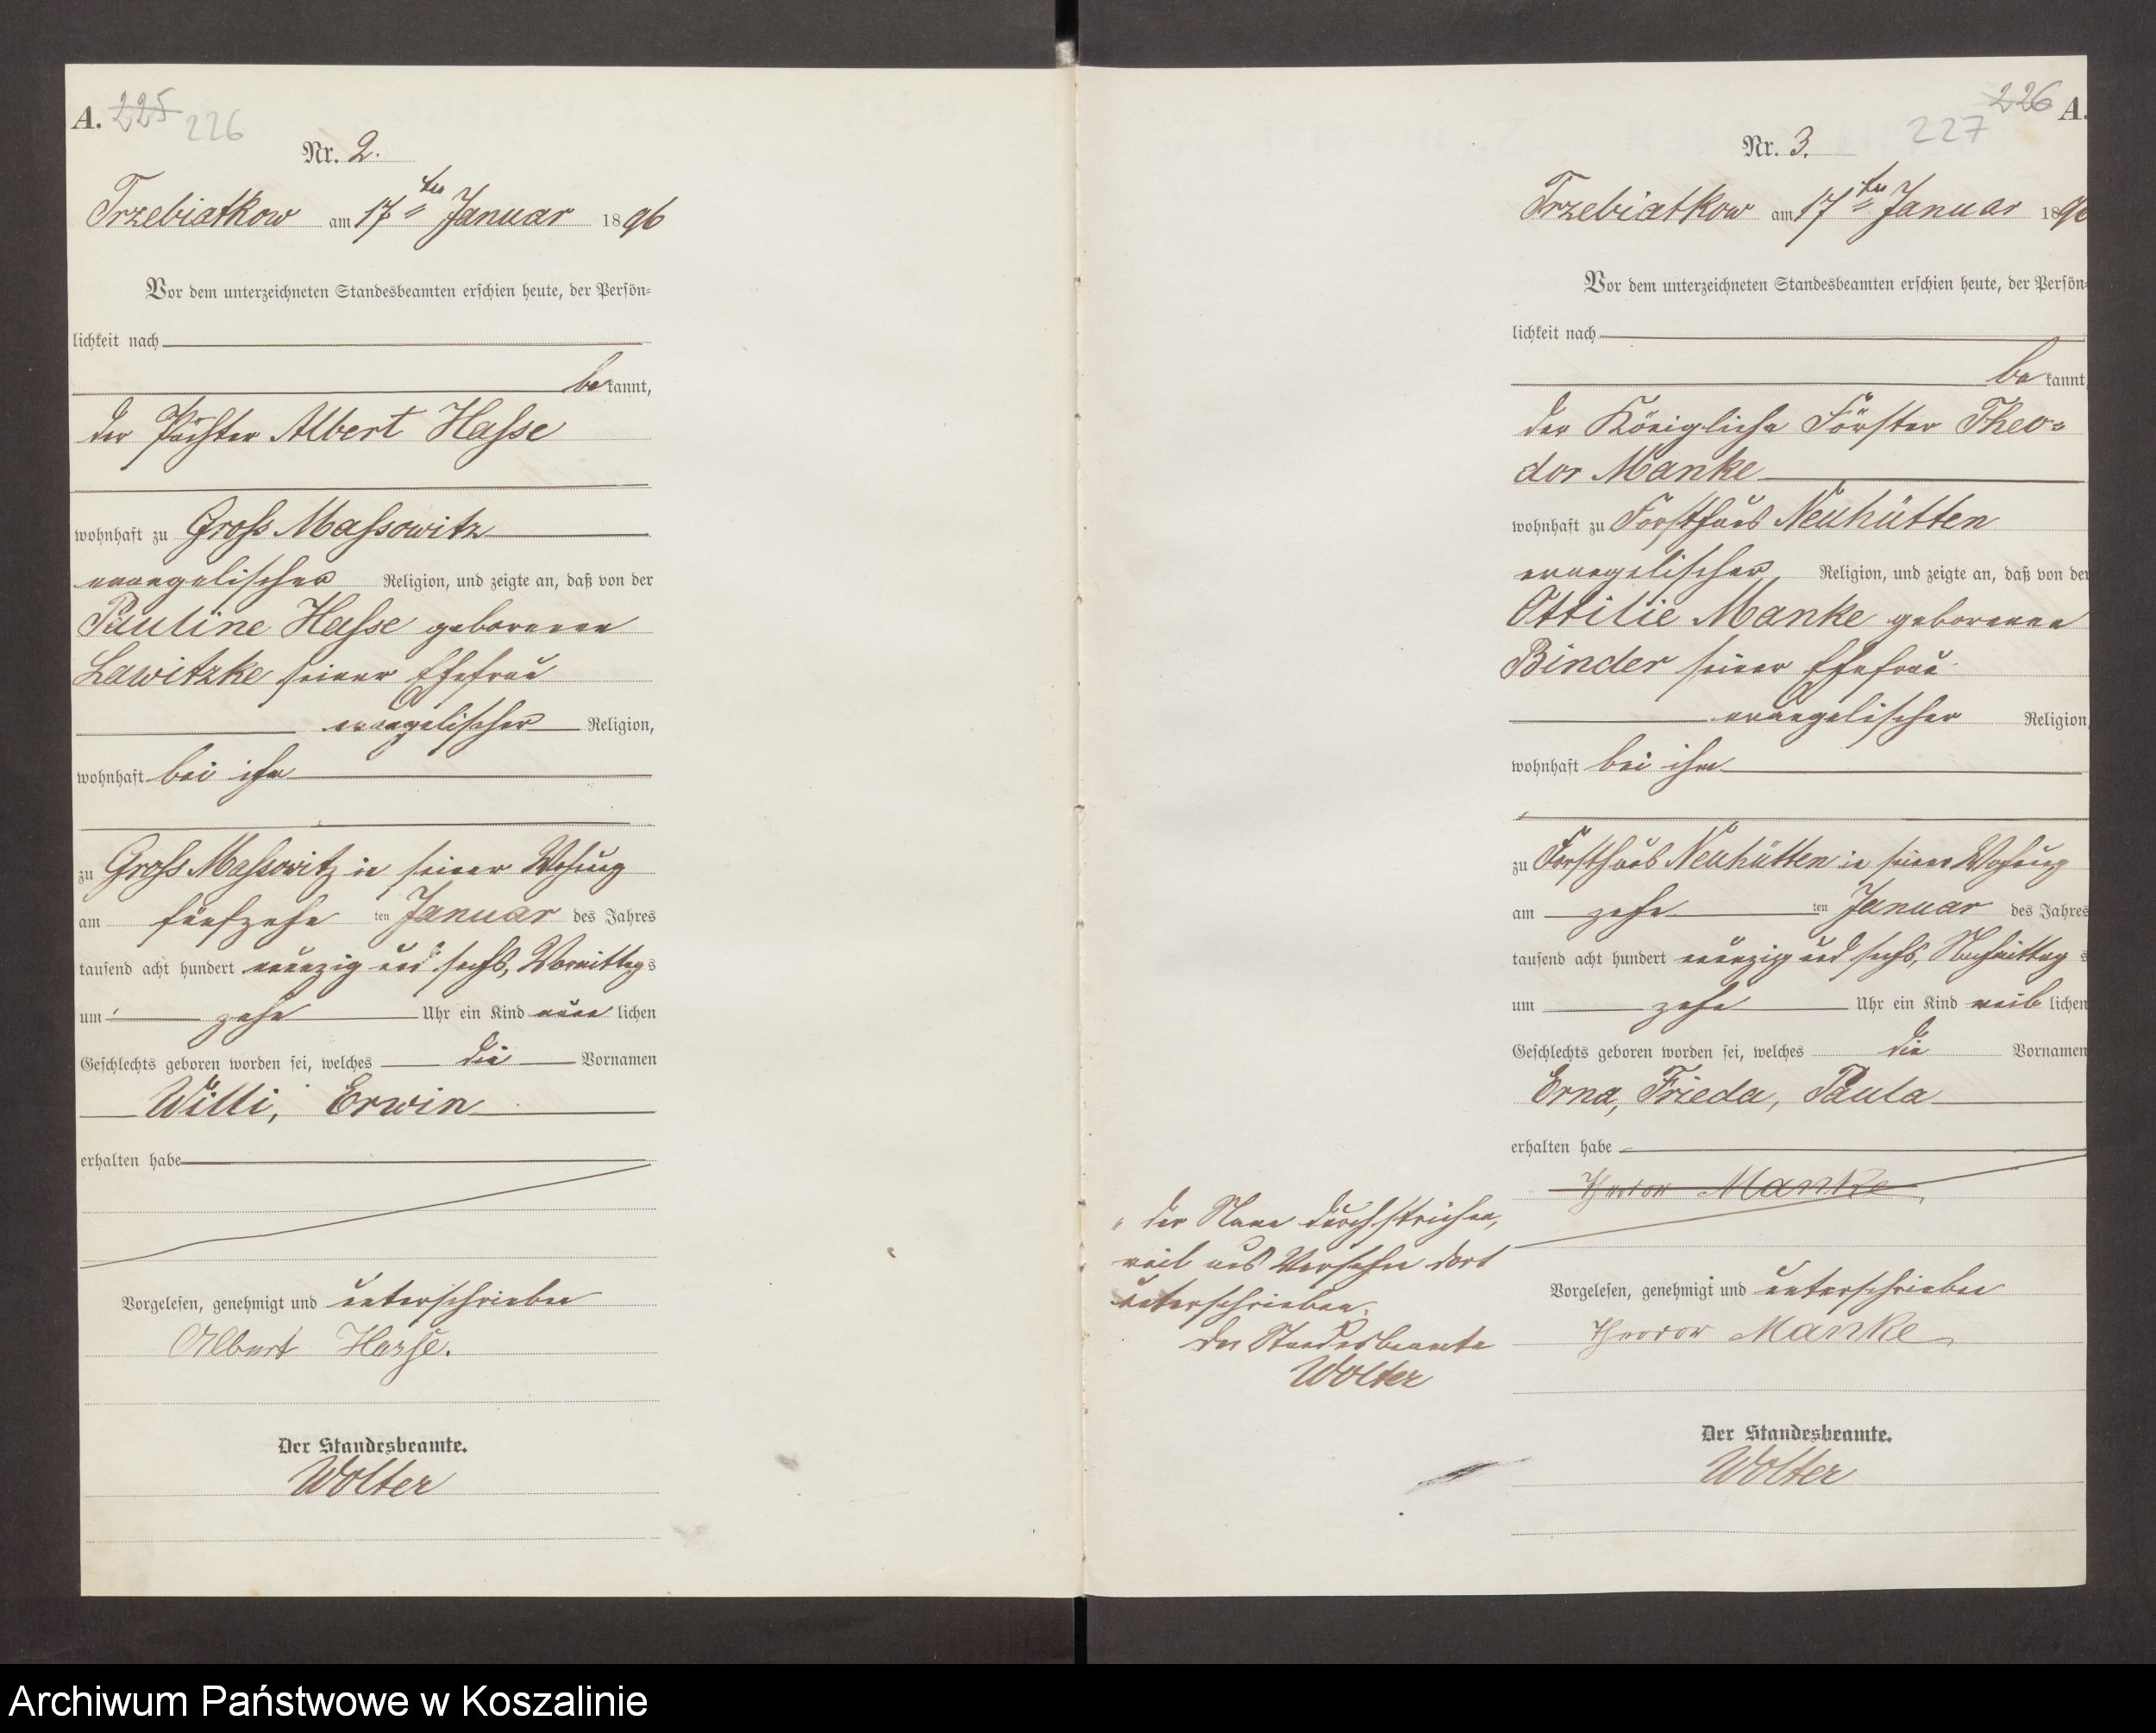 A. 225 226
Nr. 2.
Trzebiatkow am 17ten Januar 1896
Vor dem unterzeichneten Standesbeamten erschien heute, der Persön-
lichkeit nach
bekannt,
der Pächter Albert Hasse
wohnhaft zu Gross Massowitz
evangelischer Religion, und zeigte an, daß von der
Pauline Hasse geborenen
Lawitzke seiner Ehefrau
evangelischer Religion,
wohnhaft bei ihm
zu Gross Massowitz in seiner Wohnung
am fünfzehn ten Januar des Jahres
tausend acht hundert neunzig und sechs, Vormittags
um zehn Uhr ein Kind männlichen
Geschlechts geboren worden sei, welches die Vornamen
Willi, Erwin
erhalten habe
Vorgelesen, genehmigt und unterschrieben
Albert Hasse.
Der Standesbeamte.
Wolter
226 A.
227
Nr. 3.
Trzebiatkow am 17ten Januar 1896
Vor dem unterzeichneten Standesbeamten erschien heute, der Persön-
lichkeit nach
bekannt,
der Königliche Förster Theo-
dor Manke
wohnhaft zu Forsthaus Neuhütten
evangelischer Religion, und zeigte an, daß von der
Ottilie Manke geborenen
Binder seiner Ehefrau
evangelischer Religion,
wohnhaft bei ihm
zu Forsthaus Neuhütten in seiner Wohnung
am zehn ten Januar des Jahres
tausend acht hundert neunzig und sechs, Nachmittags
um zehn Uhr ein Kind weiblichen
Geschlechts geboren worden sei, welches die Vornamen
Erna, Frieda, Paula
erhalten habe
Theodor Manke
Vorgelesen, genehmigt und unterschrieben
Theodor Manke
Der Standesbeamte.
Wolter
der Name durchstrichen,
weil aus Versehn dort
unterschrieben.
Der Standesbeamte
Wolter
Archiwum Państwowe w Koszalinie